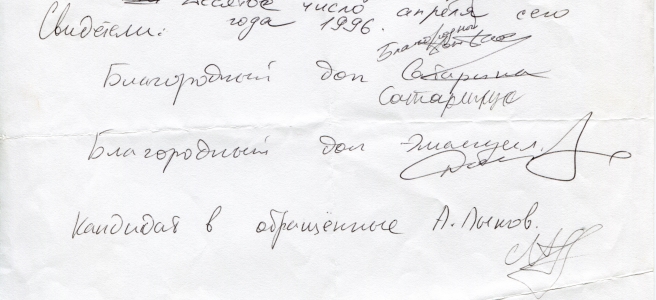 десятое число апреля сего
Свидетели: года 1996.
Благородный
Благородный дон Сатарина
Сатарину
Благородный дон Эмануил.
Кандидат в обращённые А. Лыков.